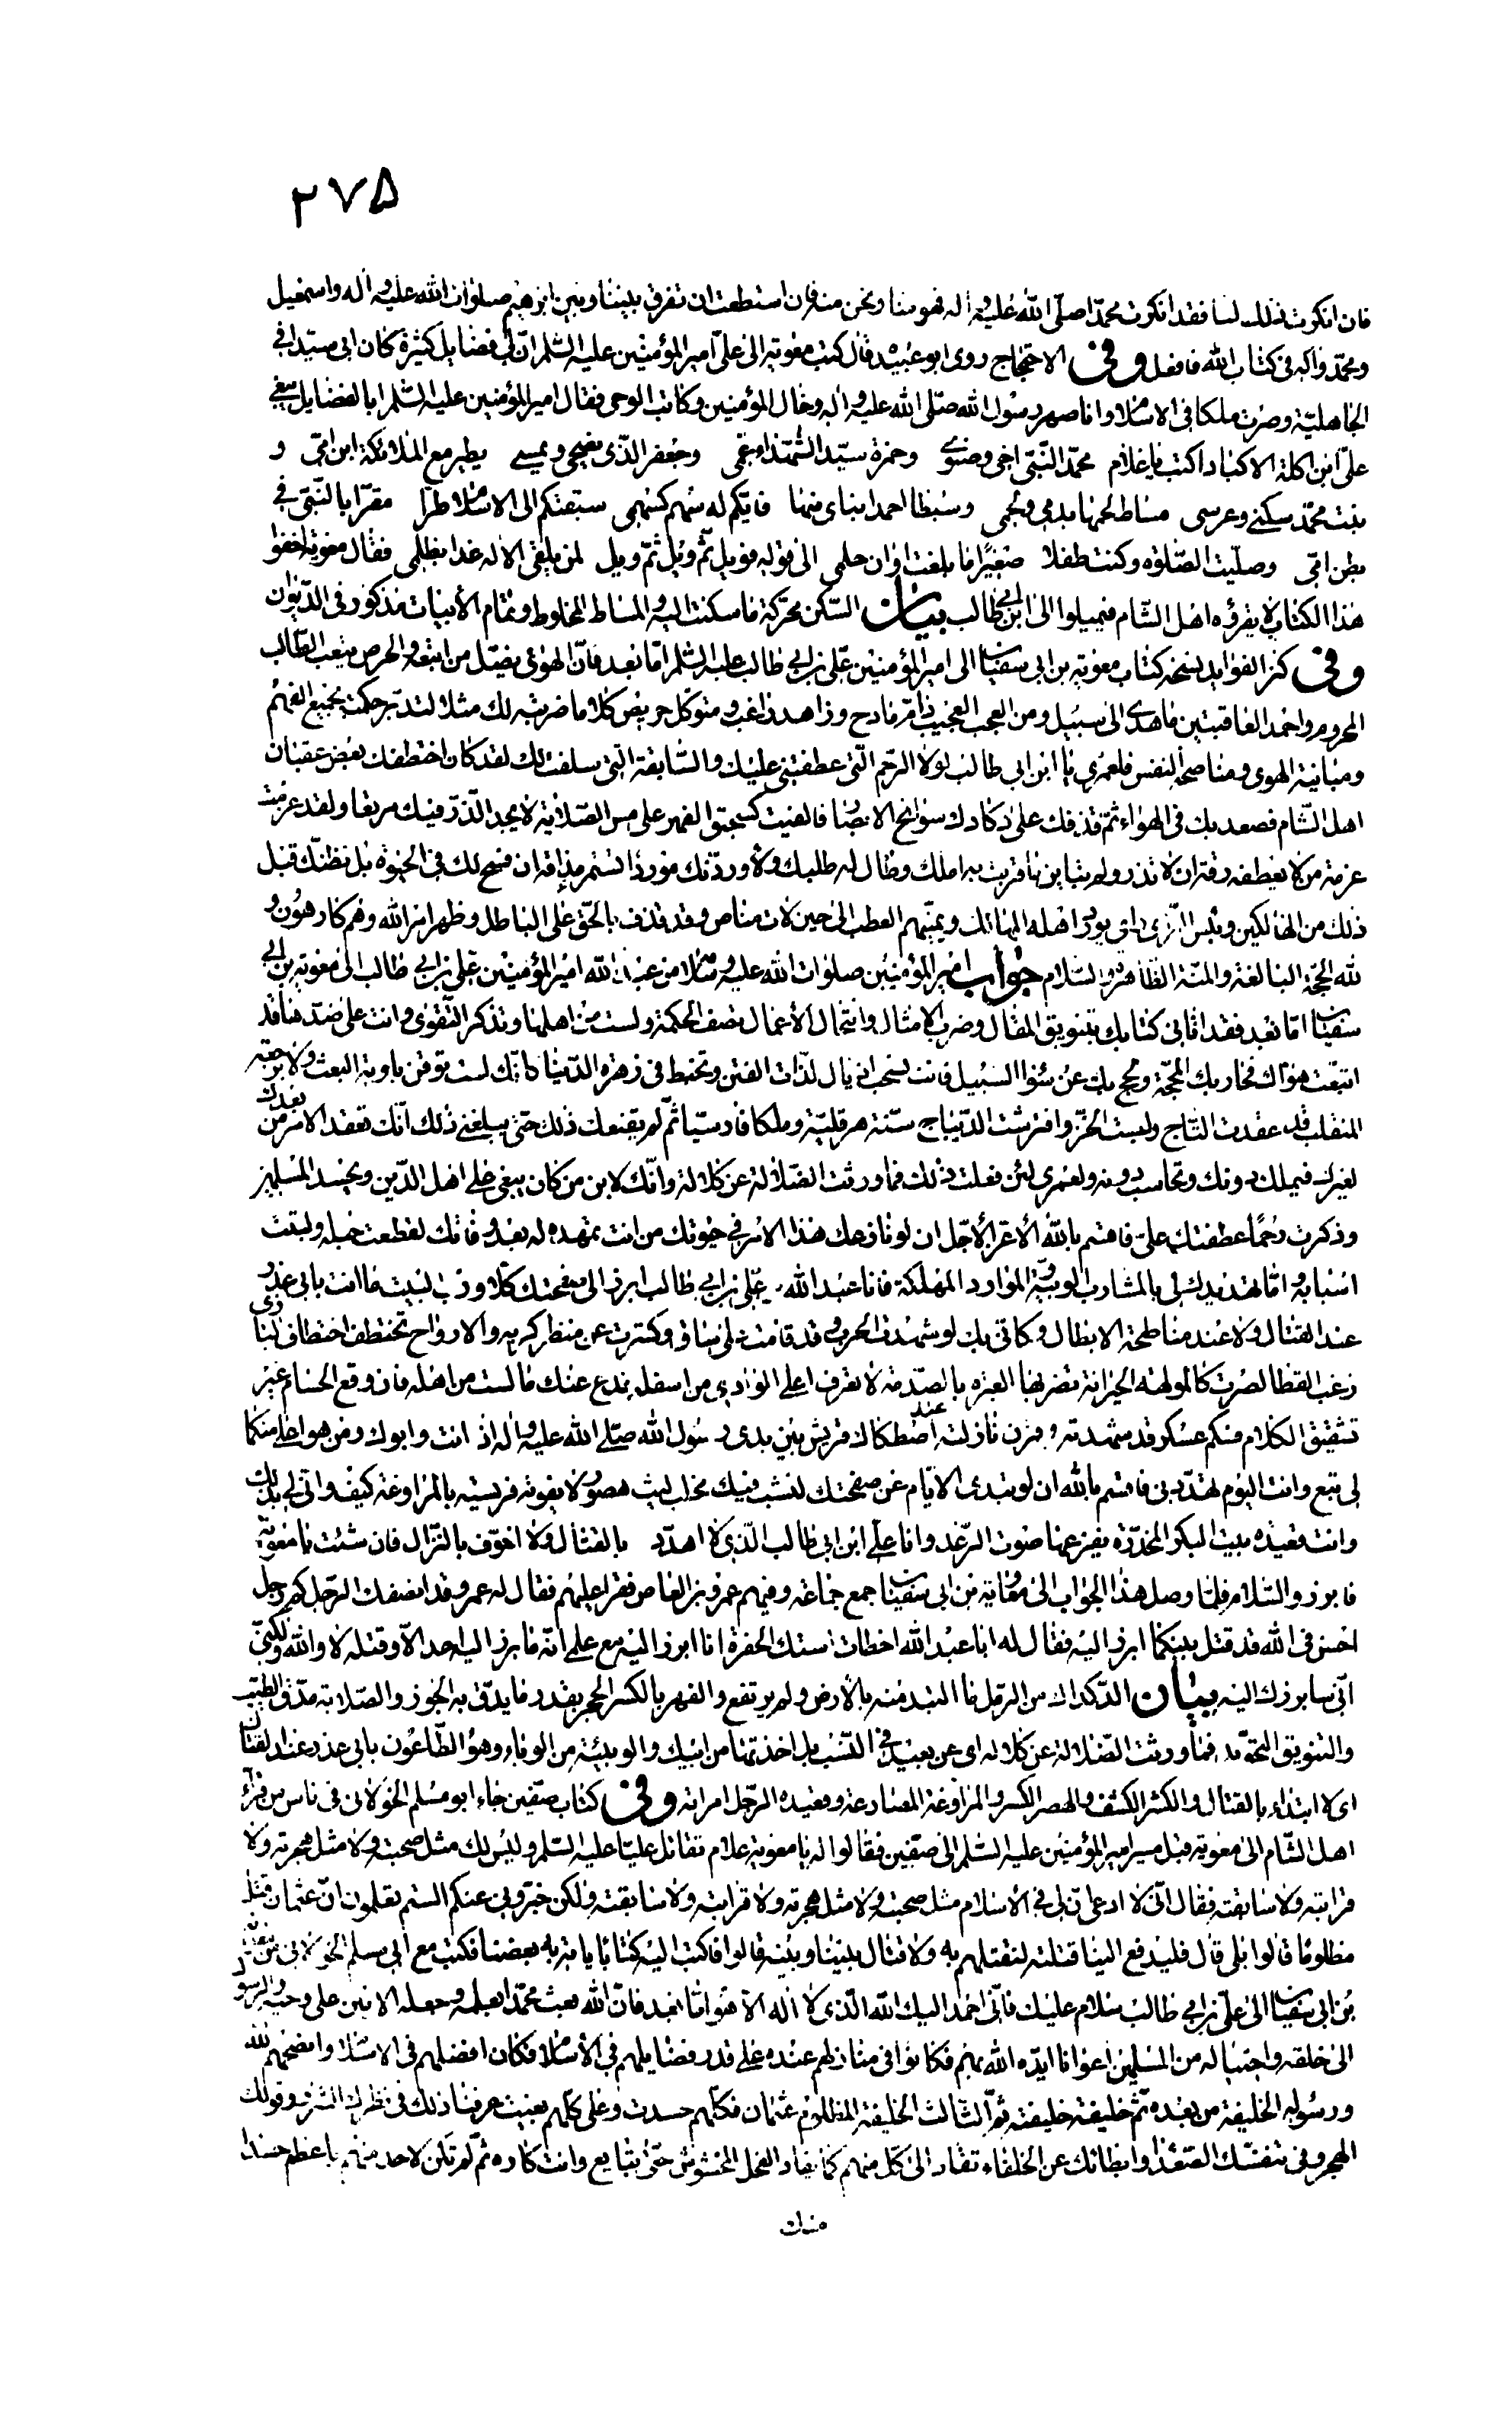 ٢٧٥
فان انكرت ذلك لنا فقد انكرت محمّدا صلّى الله عليه واله فهو منا ونحن منه فان استطعت ان تفرق بيننا وبين ابرهيم صلوات الله عليه واله واسمعيل
ومحمّد واله فى كتاب الله فافعل وفى الاحتجاج روى ابو عبيده قال كتب معوية الى علىّ امير المؤمنين عليه السّلم انّ لى فضايل كثيرة كان ابى سيّدا فى
الجاهليّة وصرت ملكا فى الاسلام وانا صهر رسول الله صلّى الله عليه واله وخال المؤمنين وكاتب الوحى فقال امير المؤمنين عليه السّلم ابالفضايل يبغى
علىّ ابن اكلة الاكباد اكتب يا غلام محمّد النّبىّ اخى وصنوى وحمزة سيّد الشّهداء عمّى وجعفر الّذى يضحى ويمسى يطير مع الملائكة ابن امّى و
بنت محمّد سكنى وعرسى مساط لحمها بدمى ولحمى وسبطا احمد ابناى منها فايّكم له سهم كسهمى سبقتكم الى الاسلام طرّا مقرّا بالنّبىّ فى
بطن امّى وصلّيت الصّلوة وكنت طفلا صغيرا ما بلغت اوان حلمى الى قوله فويل ثمّ ويل ثمّ ويل لمن يلقى الاله غدا بظلمى فقال معوية اخفوا
هذا الكتاب لا يقرؤه اهل الشّام فيميلوا الى ابن ابى طالب بيان السّكن محرّكة ما سكنت اليه والمساط المخلوط وتمام الأبيات مذكور فى الدّيوان
وفى كنز الفوايد نسخة كتاب معوية بن ابى سفيان الى امير المؤمنين علىّ بن ابى طالب عليه السّلم امّا بعد فانّ الهوى يضلّ من اتبعه والحرص يتعب الطّالب
المحروم واحمد العاقبتين ما هدى الى سبيل ومن العجب العجيب ذامّ مادح وزاهد راغب ومتوكل حريص كلاما ضربته لك مثلا لتدبّر حكمته بجميع الفهم
ومباينة الهوى ومناصحة النفس فلعمرى يا ابن ابى طالب لولا الرّحم الّتى عطفتنى عليك والسّابقة الّتى سلفت لك لقد كان اختطفك بعض عقبان
اهل الشّام فصعد بك فى الهواء ثمّ قذفك على دكادك شوامخ الابصار فالفيت كسحيق الفهر على مس الصّلابة لا يجد الذّرّ فيك مرتعا ولقد عزمت
عزمة من لا يعطفه رقة ان لا تذر ولم تباين ما قربت به املك وطال له طلبك ولاوردنّك موردا تستمر مذاقه ان فسح لك فى الحيوة بل نظنّك قبل
ذلك من الهالكين وبئس الرّأى رأى يورد اهله المهالك ويمنّيهم العطب الى حين لات مناص وقد قذف بالحّق على الباطل وظهر امر الله وهم كارهون و
لله الحجّة البالغة والمنّة الظّاهرة والسّلام جواب امير المؤمنين صلوات الله عليه وسلامه من عبد الله امير المؤمنين علىّ بن ابى طالب الى معوية بن ابى
سفيان امّا بعد فقد اتانى كتابك بتنويق المقال وضرب الامثال وانتحال الأعمال تصف الحكمة ولست من اهلها وتذكر التّقوى وانت على ضدّها قد
اتبعت هواك فحاد بك عن المحجّة ولحج بك عن سواء السّبيل فانت تسحب اذيال لذّات الفتن وتحتبط فى زهرة الدّنيا كانّك لست توقن باوبة البعث ولا برجعة
المنقلب قد عقدت التّاج ولبست الخزّ وافترشت الدّيباج سنّة هرقليّة وملكا فارسيّا ثمّ لم يقنعك ذلك حتّى يبلغنى ذلك انّك تعقد الامر من بعدك
لغيرك فيملك دونك وتحاسب دونه ولعمرى لئن فعلت ذلك فما ورثت الضّلالة عن كلالة وانّك لابن من كان يبغى على اهل الدّين ويحسد المسلمين
وذكرت رحما عطفتك علىّ فاقسم بالله الأعزّ الأجلّ ان لو نازعك هذا الامر فى حيوتك من انت تمهّده له بعد وفاتك لقطعت حبله ولبتت
اسبابه وامّا تهديدك لى بالمشارب الوبيئة والموارد المهلكة فانا عبد الله علىّ بن ابى طالب ابرز الى صفحتك كلّا وربّ البيت ما انت بابى عذر
عند القتال ولا عند مناطحة الابطال وكانّى بك لو شهدت الحرب وقد قامت على ساق وكشرت عن منظر كريه والارواح تختطف اختطاف البازى
زغب القطا لصرت كالمولهة الحيرانة تضربها العبرة بالصّدمة لا تعرف اعلى الوادى من اسفله فدع عنك ما لست من اهله فان وقع الحسام غير
تشقيق الكلام فكم عسكر قد شهدته وقرن نازلته عند اصطكاك قريش بين يدى رسول الله صلّى الله عليه واله اذ انت وابوك ومن هو اعلى منكما
لى تبع وانت اليوم تهدّدنى فاقسم بالله ان لو تبدى الايّام عن صفحتك لنشب فيك مخلب ليث هصور لا يفوته فريسته بالمراوغة كيف وانّى لك بذلك
وانت قعيدة بيت البكر المخدّرة يفزعها صوت الرّعد وانا علىّ ابن ابى طالب الّذى لا اهدّد بالقتال ولا اخوّف بالنّزال فان شئت يا معوية
فابرز والسّلام فلمّا وصل هذا الجواب الى معاوية بن ابى سفيان جمع جماعة وفيهم عمرو بن العاص فقرا عليهم فقال له عمرو قد انصفك الرّجل كم رجل
احسن فى الله قد قتل بينكما ابرز اليه فقال له ابا عبد الله اخطات استك الحفرة انا ابرز اليه مع علمى انّه ما برز اليه احد الّا وقتله لا والله ولكنّى
انّى سابرزك اليه بيان الدّكداك من الرّمل ما التبد منه بالأرض ولم يرتفع والفهر بالكسر الحجر بقدر ما يدقّ به الجوز والصّلابة مدقّ الطّيب
والتنويق التجويد فما ورثت الضّلالة عن كلالة اى عن بعيد فى النّسب بل اخذتها من ابيك والوبيئة من الوباء وهو الطّاعون بابى عذر عند القتال
اى لا ابتداء بالقتال والكشر الكشف والهصر الكسر والمراوغة المصارعة وقعيدة الرّجل امراته وفى كتاب صفّين جاء ابو مسلم الخولانى فى ناس من قرّاء
اهل الشّام الى معوية قبل مسير امير المؤمنين عليه السّلم الى صفّين فقالوا له يا معوية علام تقاتل عليّا عليه السّلم وليس لك مثل صحبته ولا مثل هجرته ولا
قرابته ولا سابقته فقال انّى لا ادعى انّ لى فى الأسلام مثل صحبته ولا مثل هجرته ولا قرابته ولا سابقته ولكن خبّرونى عنكم الستم تعلمون انّ عثمان قتل
مظلوما قالوا بلى قال فليدفع الينا قتلته لنقتلهم به ولا قتال بيننا وبينه قالوا فاكتب اليه كتابا ياته به بعضنا فكتب مع ابى مسلم الخولانى من معوية
بن ابى سفيان الى علىّ بن ابى طالب سلام عليك فانّى احمد اليك الله الّذى لا اله الّا هو امّا بعد فانّ الله بعث محمّدا بعلمه وجعله الامين على وحيه والرسول
الى خلقه واجتبا له من المسلمين اعوانا ايّده الله بهم فكانوا فى منازلهم عنده على قدر فضايلهم فى الأسلام فكان افضلهم فى الاسلام وانصحهم لله
ورسوله الخليفة من بعده ثمّ خليفة خليفته ثمّ الثّالث الخليفة المظلوم عثمان فكلّهم حسدت وعلى كلّهم بغيت عرفنا ذلك فى نظرك الشزر وقولك
الهجر وفى تنفّسك الصّعداء وابطائك عن الخلفاء تقاد الى كلّ منهم كما يقاد الفحل المخشوش حتّى تبايع وانت كاره ثمّ لم تكن لاحد منهم باعظم حسدا
منك